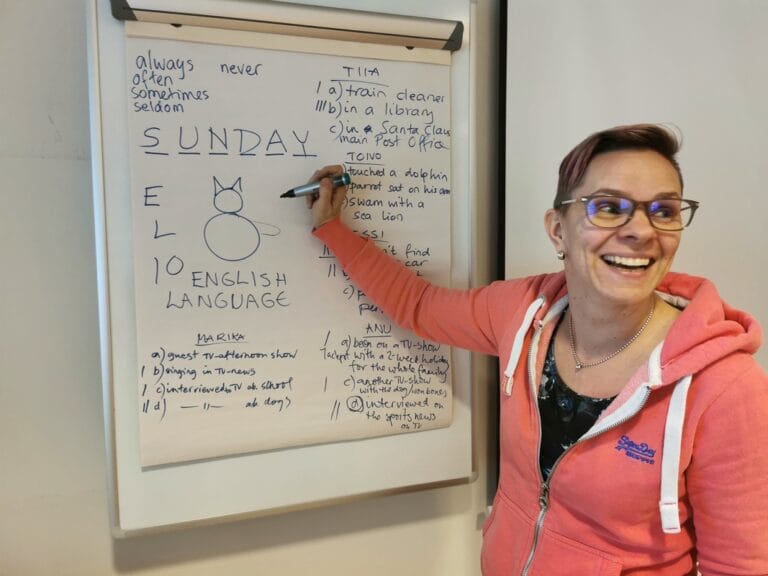 always never
often
sometimes
seldom
SUNDAY
E
L
10
ENGLISH
LANGUAGE
TIIA
| a) train cleaner
||| b) in a library
c) in a Santa Claus
main Post Office
TOIVO
touched a dolphin
parrot sat on his arm
swam with a
sea lion
SSI
't find
car
||
c)
MARIKA
a) guest TV-afternoon show
| b) singing in TV-news
| c) interviewed TV ab. school
|| d) — 11 — ab. dogs
ANU
| a) been on a TV-show
with a 2-week holiday
for the whole family
| c) another TV-show
with the dog
|| d) interviewed on
the sports news
on TV
SuperDry